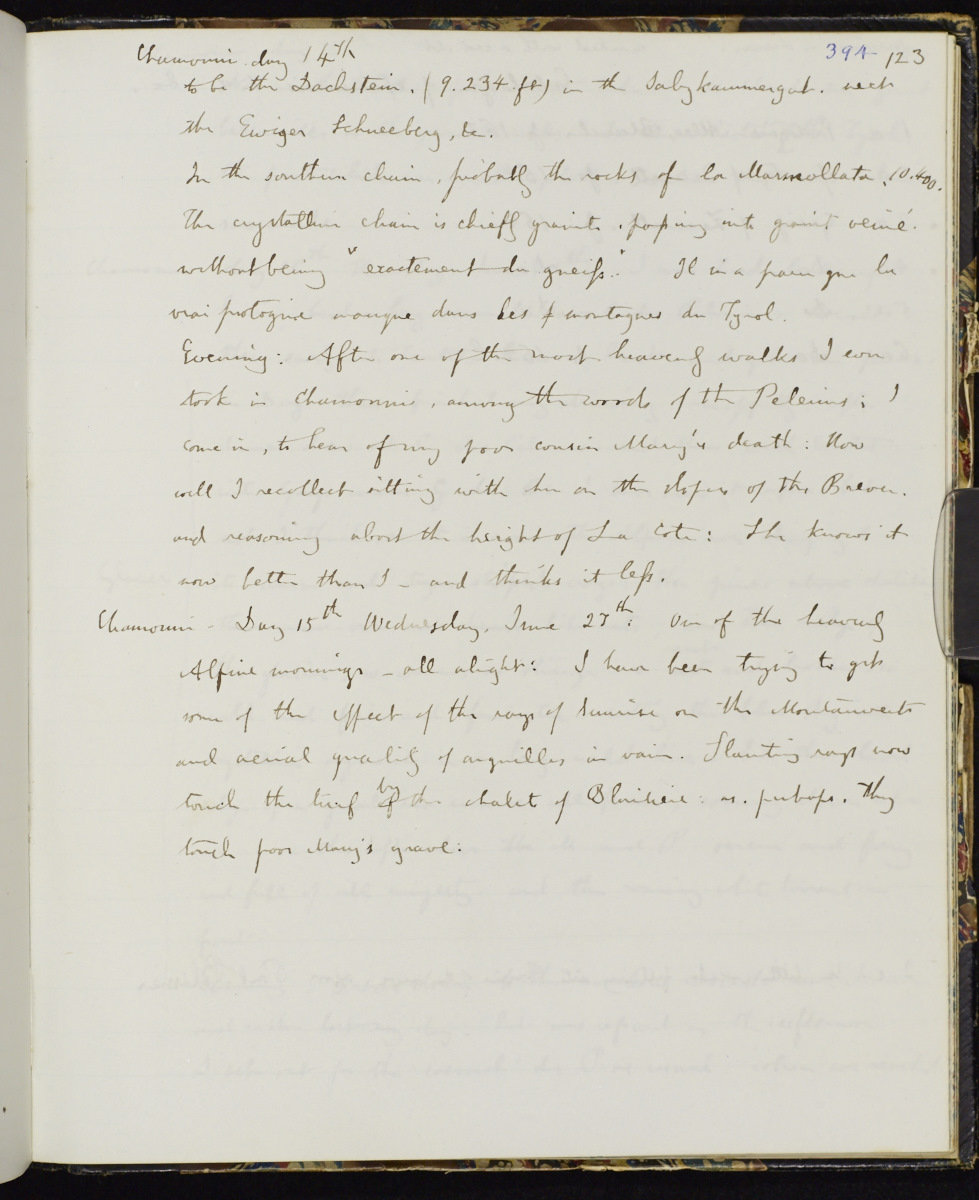 Chamouni. day 14th 394 123
to be the Dachstein. (9.234.ft) in the Salzkammergut. next
the Ewiger Schneeberg, &c.
In the southern chain, probably the rocks of la Marmollata, 10.400.
The crystalline chain is chiefly granite, passing into granit veiné.
without being "exactement du gneiss." Il in a paru que le
vrai protogine manque dans les montagnes du Tyrol.
Evening: After one of the most heavenly walks I ever
took in Chamouni, among the woods of the Pelerins; I
come in, to hear of my poor cousin Mary's death: How
well I recollect sitting with her on the slopes of the Breven.
and reasoning about the height of La Cote: She knows it
now better than I - and thinks it less.
Chamouni - Day 15th Wednesday, June 27th: One of the heavenly
Alpine mornings - all alight: I have been trying to get
some of the effect of the rays of sunrise on the Montanvert
and aerial quality of aiguilles in vain. Slanting rays now
touch the turf by the chalet of Blaitiere: as. perhaps. they
touch poor Mary's grave: